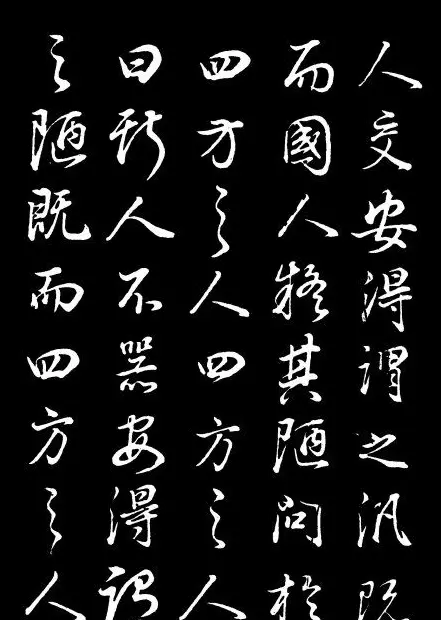 人交安得謂之汎既
而國人疑其陋問於
四方之人四方之人
曰斯人不器安得謂
之陋既而四方之人